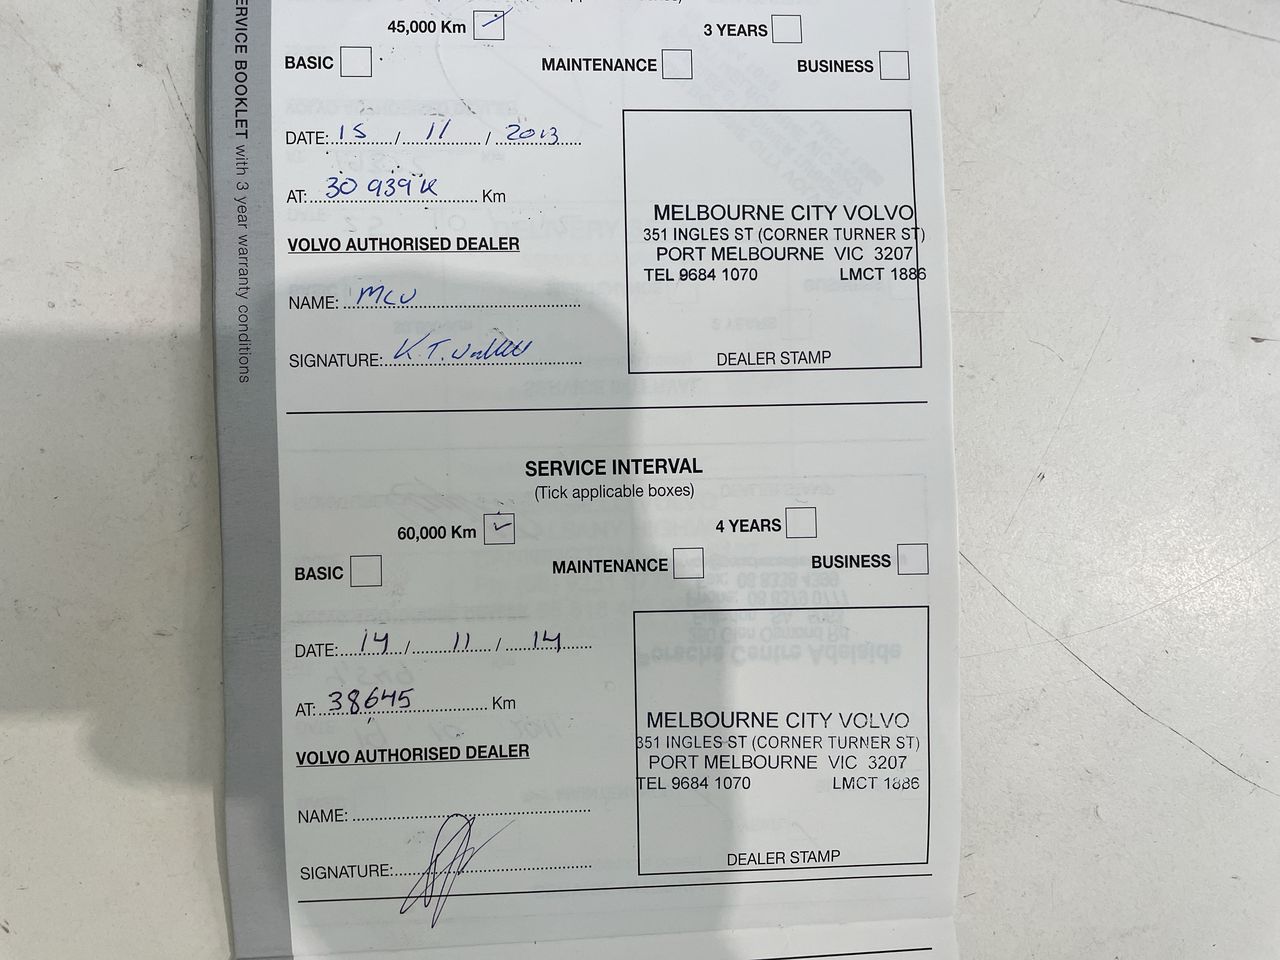 SERVICE BOOKLET with 3 year warranty conditions
45,000 Km 3 YEARS
BASIC MAINTENANCE BUSINESS
DATE: 15 / 11 / 2013
AT: 30 939 K Km
VOLVO AUTHORISED DEALER
NAME: MCV
SIGNATURE: K.T.
MELBOURNE CITY VOLVO
351 INGLES ST (CORNER TURNER ST)
PORT MELBOURNE VIC 3207
TEL 9684 1070 LMCT 1886
DEALER STAMP
SERVICE INTERVAL
(Tick applicable boxes)
60,000 Km 4 YEARS
BASIC MAINTENANCE BUSINESS
DATE: 14 / 11 / 14
AT: 38645 Km
VOLVO AUTHORISED DEALER
NAME:
SIGNATURE:
MELBOURNE CITY VOLVO
351 INGLES ST (CORNER TURNER ST)
PORT MELBOURNE VIC 3207
TEL 9684 1070 LMCT 1886
DEALER STAMP